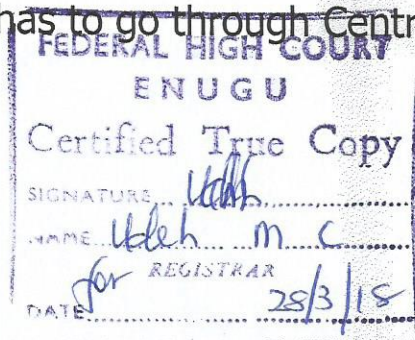 has to go through Centr
FEDERAL HIGH COURT
ENUGU
Certified True Copy
SIGNATURE
NAME Udeh M C
for REGISTRAR
DATE 28/3/18